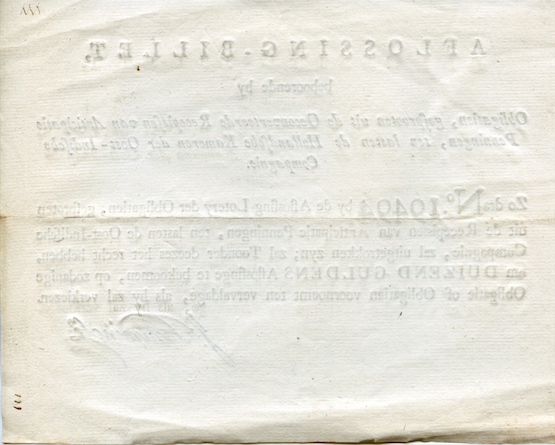 AFLOSSING-BILLET,
behoorende by
Obligatien, gesprooten uit de Geconverteerde Recepissen van Anticipatie
Penningen, ten lasten de Hollandsche Kameren der Oost-Indische
Compagnie.
Zo dra No. 10494 by de Aflossing Lotery der Obligatien, gesprooten
uit de Recepissen van Anticipatie Penningen, ten lasten de Oost-Indische
Compagnie, zal uitgetrokken zyn, zal Toonder dezes het recht hebben,
om DUIZEND GULDENS Aflossinge te bekoomen, op zodanige
Obligatie of Obligatien voornoemt ten vervaldage, als hy zal verkiezen.